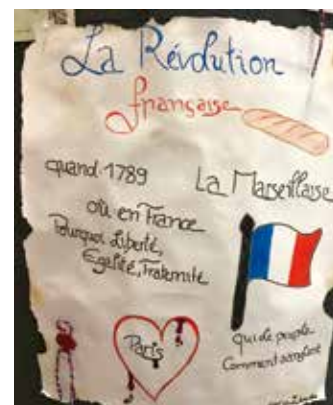 La Révolution
française
quand 1789
La Marseillaise
où en France
Pourquoi Liberté,
Egalité, Fraternité
Paris
qui le peuple
Comment sanglant